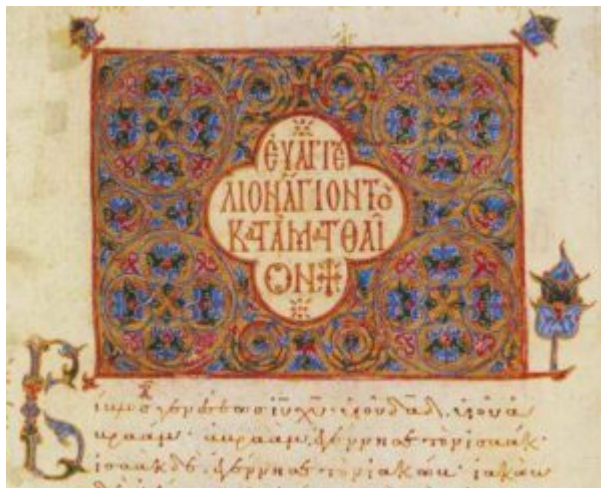 ΕΥΑΓΓΕ
ΛΙΟΝ ἍΓΙΟΝ ΤῸ
ΚΑΤᾺ ΜΑΤΘΑῖ
ΟΝ
Βίβλος γενέσεως ἰῦ χῦ υἱοῦ δαδ υἱοῦ ἀ
βραάμ· ἀβραὰμ ἐγέννησε τὸν ἰσαάκ·
ἰσαὰκ δὲ ἐγέννησε τὸν ἰακώβ· ἰακὼβ